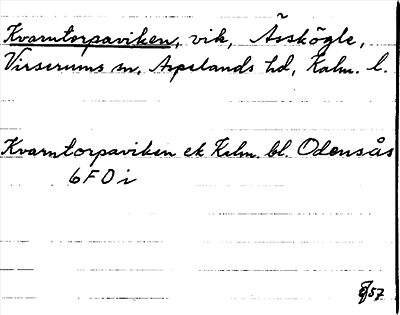 Kvarntorpaviken, vik, Åsskögle,
Virserums sn, Aspelands hd, Kalm. l.
Kvarntorpaviken ek Kalm. bl. Odensås
6F0i
57